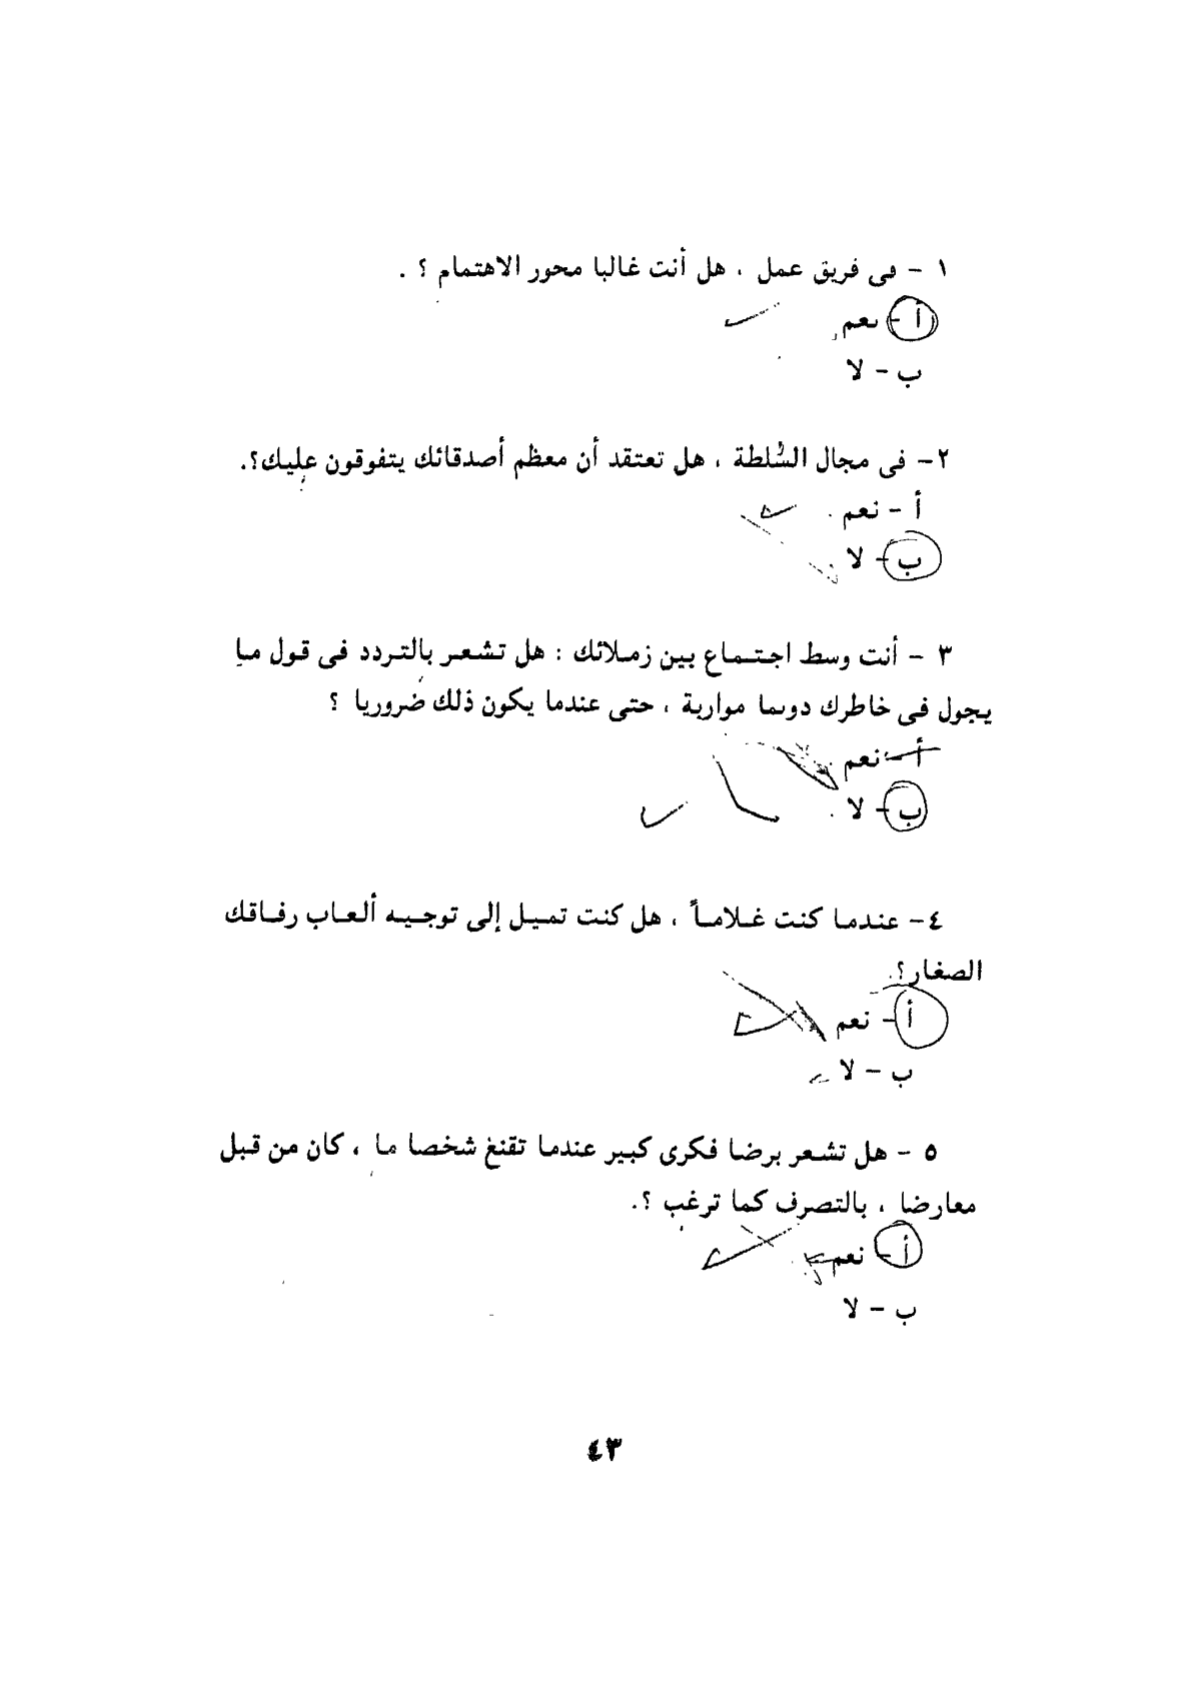 ١ - فى فريق عمل ، هل أنت غالبا محور الاهتمام ؟ .
أ - نعم
ب - لا
٢- فى مجال السُّلطة ، هل تعتقد أن معظم أصدقائك يتفوقون عليك؟.
أ - نعم .
ب - لا
٣ - أنت وسط اجتماع بين زملائك : هل تشعر بالتردد فى قول ما
يجول فى خاطرك دوىما مواربة ، حتى عندما يكون ذلك ضروريا ؟
أ - نعم
ب - لا .
٤- عندما كنت غلاماً ، هل كنت تميل إلى توجيه ألعاب رفاقك
الصغار؟.
أ - نعم
ب - لا
٥ - هل تشعر برضا فكرى كبير عندما تقنع شخصا ما ، كان من قبل
معارضا ، بالتصرف كما ترغب ؟.
أ - نعم
ب - لا
٤٣